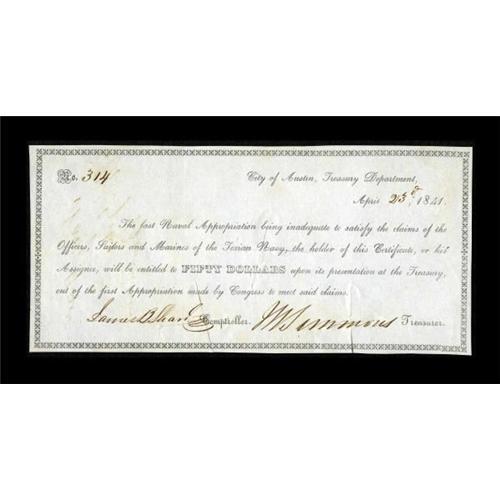 No. 314 City of Austin, Treasury Department,
April 23d 1841.
The last Naval Appropriation being inadequate to satisfy the claims of the
Officers, Saylors and Marines of the Texian Navy, the holder of this Certificate, or his
Assignee, will be entitled to FIFTY DOLLARS upon its presentation at the Treasury,
out of the first Appropriation made by Congress to meet said claims.
James B Shaw Comptroller. W Simmons Treasurer.